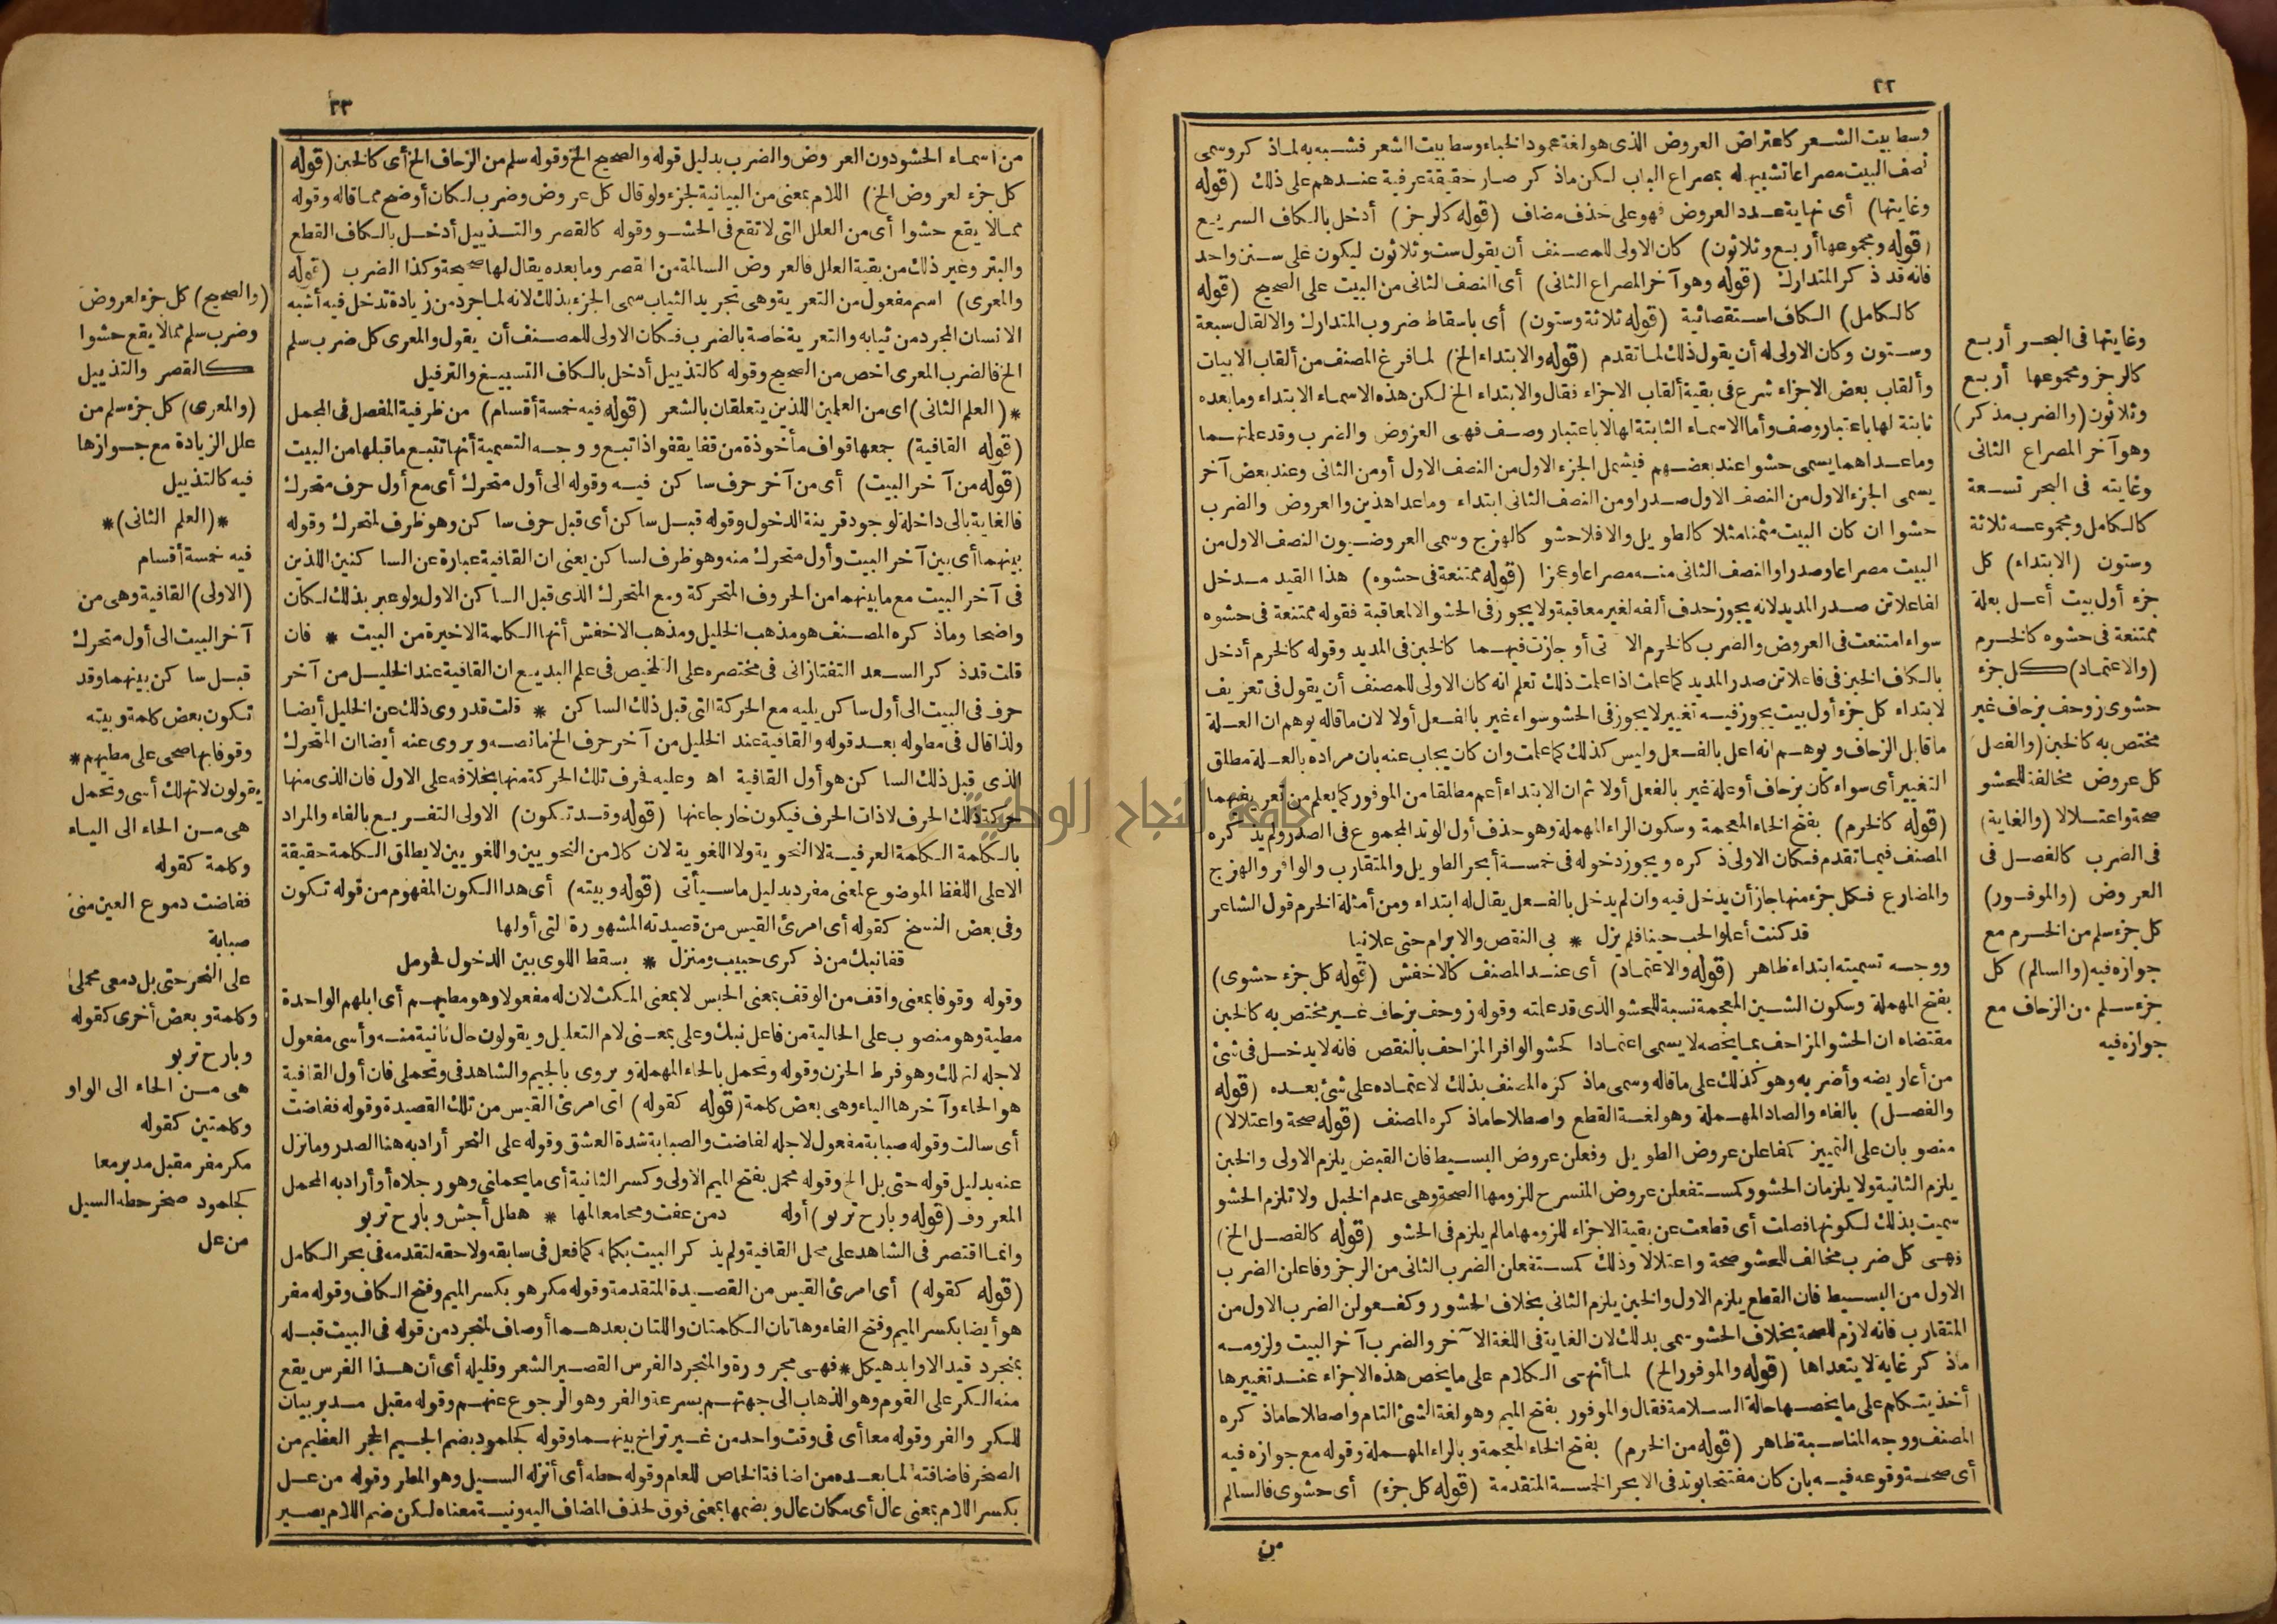 ٢٢
وسط بيت الشعر كاعتراض العروض الذى هو لغة عمود الخباء وسط بيت الشعر فشبه به لماذ كر وسمى
نصف البيت مصراعا تشبيها له بمصراع الباب لكن ماذ كر صار حقيقة عرفية عندهم على ذلك (قوله
وغايتها) أى نهاية عدد العروض فهو على حذف مضاف (قوله كالرجز) أدخل بالكاف السريع
(قوله ومجموعها أربع وثلاثون) كان الاولى للمصنف أن يقول ست وثلاثون ليكون على سنن واحد
فانه قد ذكر المتدارك (قوله وهو آخر المصراع الثانى) أى النصف الثانى من البيت على الصحيح (قوله
كالكامل) الكاف استقصائية (قوله ثلاثة وستون) أى باسقاط ضروب المتدارك والالقال سبعة
وستون وكان الاولى له أن يقول ذلك لما تقدم (قوله والابتداء الخ) لما فرغ المصنف من ألقاب الابيات
وألقاب بعض الاجزاء شرع فى بقية ألقاب الاجزاء فقال والابتداء الخ لكن هذه الاسماء الابتداء وما بعده
ثابتة لها باعتبار وصف وأما الاسماء الثابتة لها لا باعتبار وصف فهى العروض والضرب وقد علمتهما
وما عداهما يسمى حشوا عند بعضهم فيشمل الجزء الاول من النصف الاول أو من الثانى وعند بعض آخر
يسمى الجزء الاول من النصف الاول صدرا ومن النصف الثانى ابتداء وما عدا هذين والعروض والضرب
حشوا ان كان البيت مثمنا مثلا كالطويل والا فلا حشو كالهزج وسمى العروضيون النصف الاول من
البيت مصراعا وصدرا والنصف الثانى منه مصراعا وعجزا (قوله ممتنعة فى حشوه) هذا القيد مدخل
لفاعلاتن صدر المديد لانه يجوز حذف ألفه لغير معاقبة ولا يجوز فى الحشو الا لمعاقبة فقوله ممتنعة فى حشوه
سواء امتنعت فى العروض والضرب كالخرم الا تى أو جازت فيهما كالخبن فى المديد وقوله كالخرم أدخل
بالكاف الخبن فى فاعلاتن صدر المديد كما علمت اذا علمت ذلك تعلم انه كان الاولى للمصنف أن يقول فى تعريف
لابتداء كل جزء أول بيت يجوز فيه تغيير لا يجوز فى الحشو سواء غير بالفعل أولا لان ما قاله يوهم ان العلة
ما قابل الزحاف ويوهم انه اعل بالفعل وليس كذلك كما علمت وان كان يجاب عنه بان مراده بالعلة مطلق
التغيير أى سواء كان بزحاف أو علة غير بالفعل أولا ثم ان الابتداء أعم مطلقا من الموفور كما يعلم من تعريفهما
(قوله كالخرم) بفتح الخاء المعجمة وسكون الراء المهملة وهو حذف أول الوتد المجموع فى الصدر ولم يذ كره
المصنف فيما تقدم فكان الاولى ذكره ويجوز دخوله فى خمسة أبحر الطويل والمتقارب والوافر والهزج
والمضارع فكل جزء منها جاز أن يدخل فيه وان لم يدخل بالفعل يقال له ابتداء ومن أمثلة الخرم قول الشاعر
قد كنت أعلو الحب حينا فلم يزل * بى النقص والابرام حتى علانيا
ووجه تسميته ابتداء ظاهر (قوله والاعتماد) أى عند المصنف كالاخفش (قوله كل جزء حشوى)
بفتح المهملة وسكون الشين المعجمة نسبة للحشو الذى قد علمته وقوله زوحف بزحاف غير مختص به كالخبن
مقتضاه ان الحشو المزاحف بما يخصه لا يسمى اعتمادا كحشو الوافر المزاحف بالنقص فانه لا يدخل فى شئ
من أعاريضه وأضربه وهو كذلك على ما قاله وسمى ماذ كره المصنف بذلك لاعتماده على شئ بعده (قوله
والفصل) بالفاء والصاد المهملة وهو لغة القطع واصطلاحا ماذ كره المصنف (قوله صحة واعتلالا)
منصوبان على التمييز كمفاعلن عروض الطويل وفعلن عروض البسيط فان القبض يلزم الاولى والخبن
يلزم الثانية ولا يلزمان الحشو وكمستفعلن عروض المنسرح للزومها الصحة وهى عدم الخبل ولا تلزم الحشو
سميت بذلك لكونها فصلت أى قطعت عن بقية الاجزاء للزومها ما لم يلزم فى الحشو (قوله كالفصل الخ)
فهى كل ضرب مخالف للحشو صحة واعتلالا وذلك كمستفعلن الضرب الثانى من الرجز وفاعلن الضرب
الاول من البسيط فان القطع يلزم الاول والخبن يلزم الثانى بخلاف الحشو وكفعولن الضرب الاول من
المتقارب فانه لازم للصحة بخلاف الحشو سمى بذلك لان الغاية فى اللغة الا خر والضرب آخر البيت ولزومه
ماذ كر غاية لا يتعداها (قوله والموفور الخ) لما أنهى الكلام على ما يخص هذه الاجزاء عند تغييرها
أخذ يتكلم على ما يخصها حالة السلامة فقال والموفور بفتح الميم وهو لغة الشئ التام واصطلاحا ماذ كره
المصنف ووجه المناسبة ظاهر (قوله من الخرم) بفتح الخاء المعجمة وبالراء المهملة وقوله مع جوازه فيه
أى صحة وقوعه فيه بان كان مفتتحا بوتد فى الابحر الخمسة المتقدمة (قوله كل جزء) أى حشوى فالسالم
من
وغايتها فى البحر أربع
كالرجز ومجموعها أربع
وثلاثون (والضرب مذكر)
وهو آخر المصراع الثانى
وغايته فى البحر تسعة
كالكامل ومجموعه ثلاثة
وستون (الابتداء) كل
جزء أول بيت أعل بعلة
ممتنعة فى حشوه كالخرم
(والاعتماد) كل جزء
حشوى زوحف بزحاف غير
مختص به كالخبن (والفصل)
كل عروض مخالفة للحشو
صحة واعتلالا (والغاية)
فى الضرب كالفصل فى
العروض (والموفور)
كل جزء سلم من الخرم مع
جوازه فيه (والسالم) كل
جزء سلم من الزحاف مع
جوازه فيه
٢٣
من اسماء الحشو دون العروض والضرب بدليل قوله والصحيح الخ وقوله سلم من الزحاف الخ أى كالخبن (قوله
كل جزء لعروض الخ) اللام بمعنى من البيانية لجزء ولو قال كل عروض وضرب لكان أوضح مما قاله وقوله
مما لا يقع حشوا أى من العلل التى لا تقع فى الحشو وقوله كالقصر والتذييل أدخل بالكاف القطع
والبتر وغير ذلك من بقية العلل فالعروض السالمة من القصر وما بعده يقال لها صحيحة وكذا الضرب (قوله
والمعرى) اسم مفعول من التعرية وهى تجريد الثياب سمى الجزء بذلك لانه لما جرد من زيادة تدخل فيه أشبه
الانسان المجرد من ثيابه والتعرية خاصة بالضرب فكان الاولى للمصنف أن يقول والمعرى كل ضرب سلم
الخ فالضرب المعرى اخص من الصحيح وقوله كالتذييل أدخل بالكاف التسبيغ والترفيل
* (العلم الثانى) اى من العلمين اللذين يتعلقان بالشعر (قوله فيه خمسة أقسام) من ظرفية المفصل فى المجمل
(قوله القافية) جمعها قواف مأخوذة من قفا يقفو اذا تبع ووجه التسمية أنها تتبع ما قبلها من البيت
(قوله من آخر البيت) أى من آخر حرف ساكن فيه وقوله الى أول متحرك أى مع أول حرف متحرك
فالغاية بالى داخلة لوجود قرينة الدخول وقوله قبل ساكن أى قبل حرف ساكن وهو ظرف لمتحرك وقوله
بينهما أى بين آخر البيت وأول متحرك منه وهو ظرف لساكن يعنى ان القافية عبارة عن الساكنين اللذين
فى آخر البيت مع ما بينهما من الحروف المتحركة ومع المتحرك الذى قبل الساكن الاول ولو عبر بذلك لكان
واضحا وماذ كره المصنف هو مذهب الخليل ومذهب الاخفش أنها الكلمة الاخيرة من البيت * فان
قلت قد ذكر السعد التفتازانى فى مختصره على التلخيص فى علم البديع ان القافية عند الخليل من آخر
حرف فى البيت الى أول ساكن يليه مع الحركة التى قبل ذلك الساكن * قلت قد روى ذلك عن الخليل أيضا
ولذا قال فى مطوله بعد قوله والقافية عند الخليل من آخر حرف الخ ما نصه ويروى عنه أيضا ان المتحرك
الذى قبل ذلك الساكن هو أول القافية اه وعليه فحرف تلك الحركة منها بخلافه على الاول فان الذى منها
حركة ذلك الحرف لا ذات الحرف فيكون خارجا عنها (قوله وقد تكون) الاولى التفريع بالفاء والمراد
بالكلمة الكلمة العرفية لا النحوية ولا اللغوية لان كلا من النحويين واللغويين لا يطلق الكلمة حقيقة
الا على اللفظ الموضوع لمعنى مفرد بدليل ما سيأتى (قوله وبيته) أى هذا الكون المفهوم من قوله تكون
وفى بعض النسخ كقوله أى امرئ القيس من قصيدته المشهورة التى أولها
قفا نبك من ذ كرى حبيب ومنزل * بسقط اللوى بين الدخول فحومل
وقوله وقوفا بمعنى واقف من الوقف بمعنى الحبس لا بمعنى المكث لان له مفعولا وهو مطيهم أى ابلهم الواحدة
مطية وهو منصوب على الحالية من فاعل نبك وعلى بمعنى لام التعليل ويقولون حال ثانية منه وأسى مفعول
لاجله لتهلك وهو فرط الحزن وقوله وتحمل بالحاء المهملة ويروى بالجيم والشاهد فى وتحملى فان أول القافية
هو الحاء وآخرها الياء وهى بعض كلمة (قوله كقوله) اى امرئ القيس من تلك القصيدة وقوله ففاضت
أى سالت وقوله صبابة مفعول لاجله لفاضت والصبابة شدة العشق وقوله على النحر أراد به هنا الصدر وما نزل
عنه بدليل قوله حتى بل الخ وقوله محمل بفتح الميم الاولى وكسر الثانية أى ما يحملنى وهو رجلاه أو أراد به المحمل
المعروف (قوله وبارح تربو) أوله دمن عفت ومحا معالمها * هطل أجش وبارح تربو
وانما اقتصر فى الشاهد على محل القافية ولم يذ كر البيت بكماله كما فعل فى سابقه ولاحقه لتقدمه فى بحر الكامل
(قوله كقوله) أى امرئ القيس من القصيدة المتقدمة وقوله مكر هو بكسر الميم وفتح الكاف وقوله مفر
هو أيضا بكسر الميم وفتح الفاء وهاتان الكلمتان واللتان بعدهما أوصاف لمنجرد من قوله فى البيت قبله
بمنجرد قيد الاوابد هيكل * فهى مجرورة والمنجرد الفرس القصير الشعر وقليله أى أن هذا الفرس يقع
منه الكر على القوم وهو الذهاب الى جهتهم بسرعة والفر وهو الرجوع عنهم وقوله مقبل مدبر بيان
للكر والفر وقوله معا أى فى وقت واحد من غير تراخ بينهما وقوله كجلمود بضم الجيم الحجر العظيم من
الصخر فاضافته لما بعده من اضافة الخاص للعام وقوله حطه أى أنزله السيل وهو المطر وقوله من عل
بكسر اللام بمعنى عال أى مكان عال وبضمها بمعنى فوق لحذف المضاف اليه ونية معناه لكن ضم اللام يصير
(والصحيح) كل جزء لعروض
وضرب سلم مما لا يقع حشوا
كالقصر والتذييل
(والمعرى) كل جزء سلم من
علل الزيادة مع جوازها
فيه كالتذييل
*(العلم الثانى)*
فيه خمسة أقسام
(الاولى) القافية وهى من
آخر البيت الى أول متحرك
قبل ساكن بينهما وقد
تكون بعض كلمة وبيته
وقوفا بها صحبى على مطيهم *
يقولون لا تهلك أسى وتحمل
هى من الحاء الى الياء
وكلمة كقوله
ففاضت دموع العين منى
صبابة
على النحر حتى بل دمعى محملى
وكلمة وبعض أخرى كقوله
وبارح تربو
هى من الحاء الى الواو
وكلمتين كقوله
مكر مفر مقبل مدبر معا
كجلمود صخر حطه السيل
من عل
جامعة النجاح الوطنية